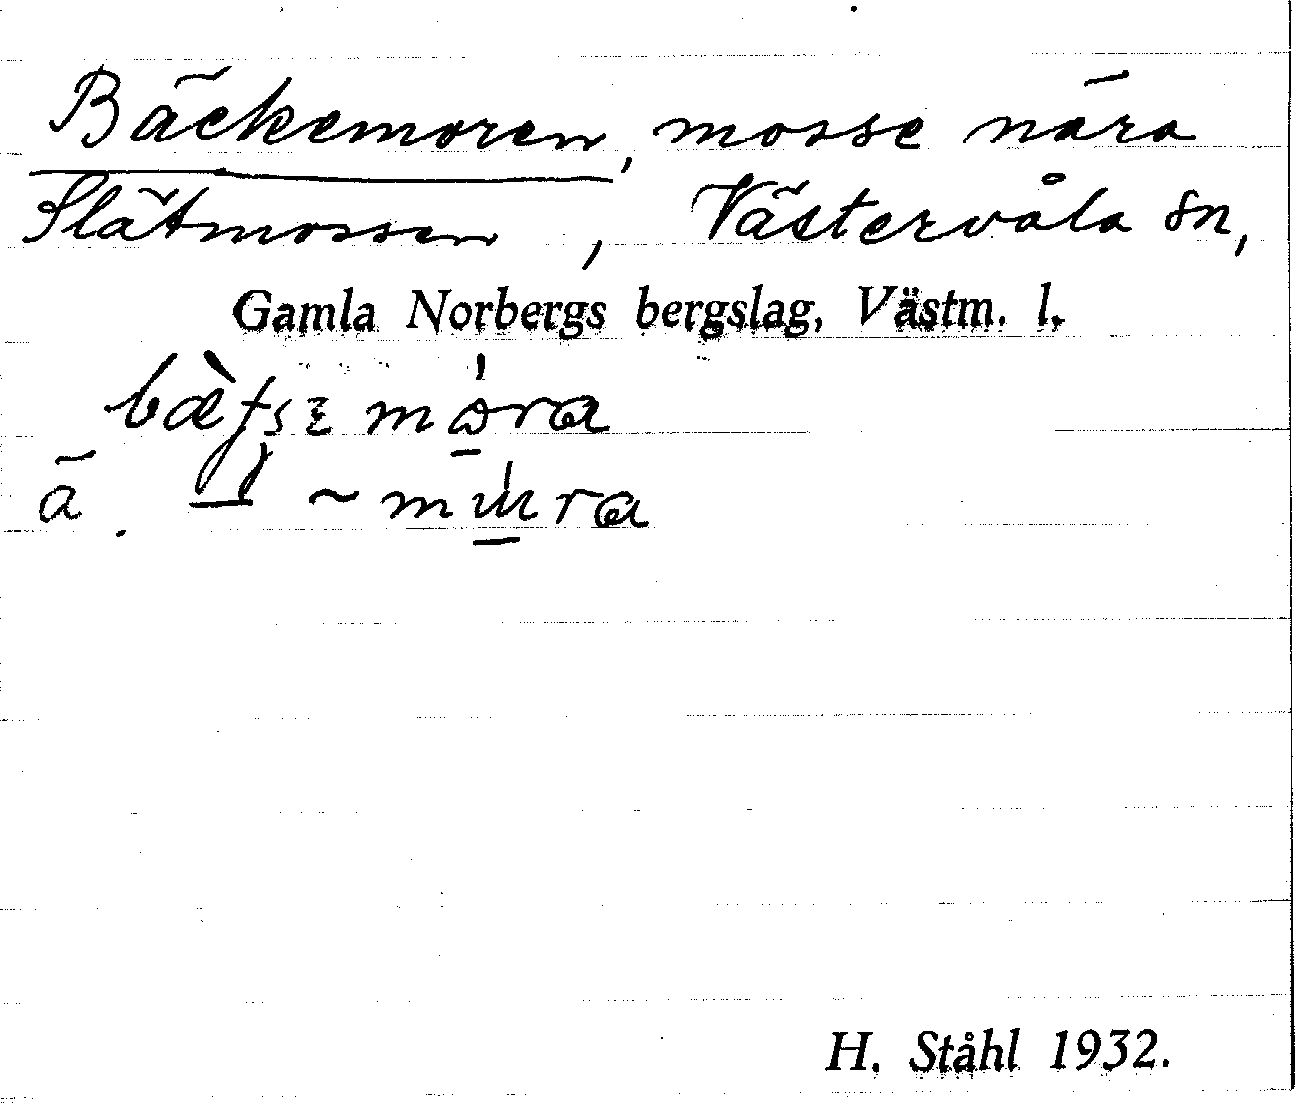 Bäckemoren, mosse nära
Slätmossen, Västervåla sn,
Gamla Norbergs bergslag, Västm. l.
ä.
H. Ståhl 1932.